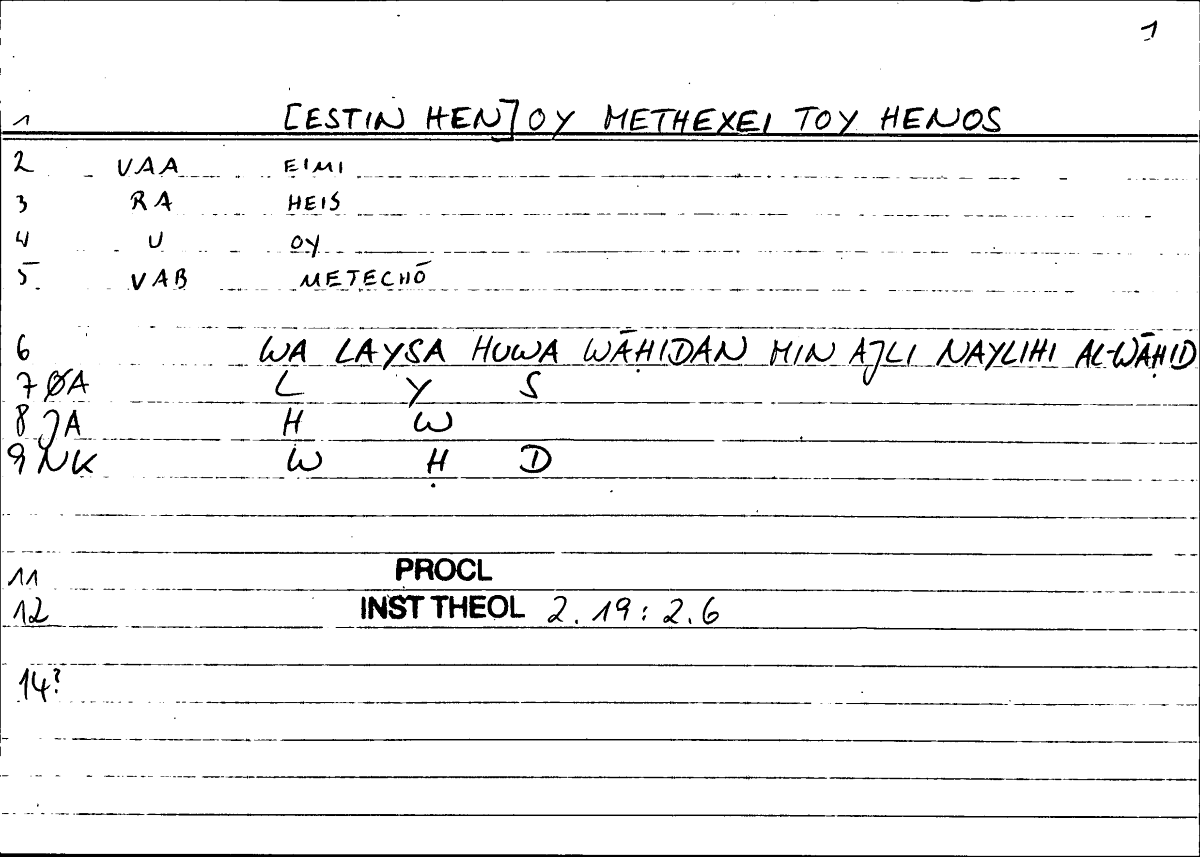 1
1 [ESTIN HEN] OY METHEXEI TOY HENOS
2 VAA EIMI
3 RA HEIS
4 U OY
5 VAB METECHŌ
6 WA LAYSA HUWA WĀḤIDAN MIN AJLI NAYLIHI AL-WĀḤID
7 ØA L Y S
8 JA H W
9 NK W Ḥ D
11 PROCL
12 INST THEOL 2.19:2.6
14?